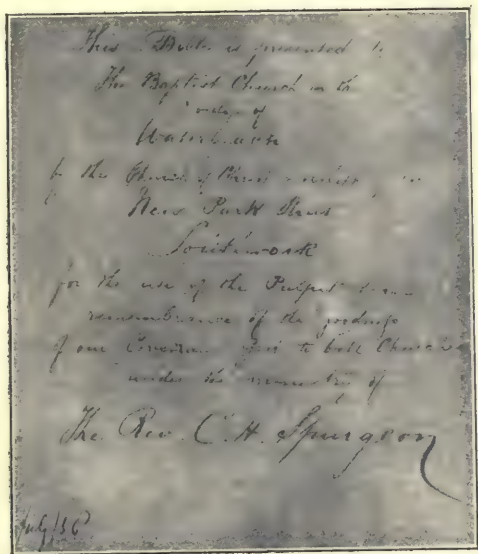 This Bible is presented to
The Baptist Church in the
village of
Waterbeach
by the Church of Christ in
New Park Street
Southwark
for the use of the Pulpit in
remembrance of the goodness
of our God to both Churches
under the ministry of
The Rev. C. H. Spurgeon
July /56